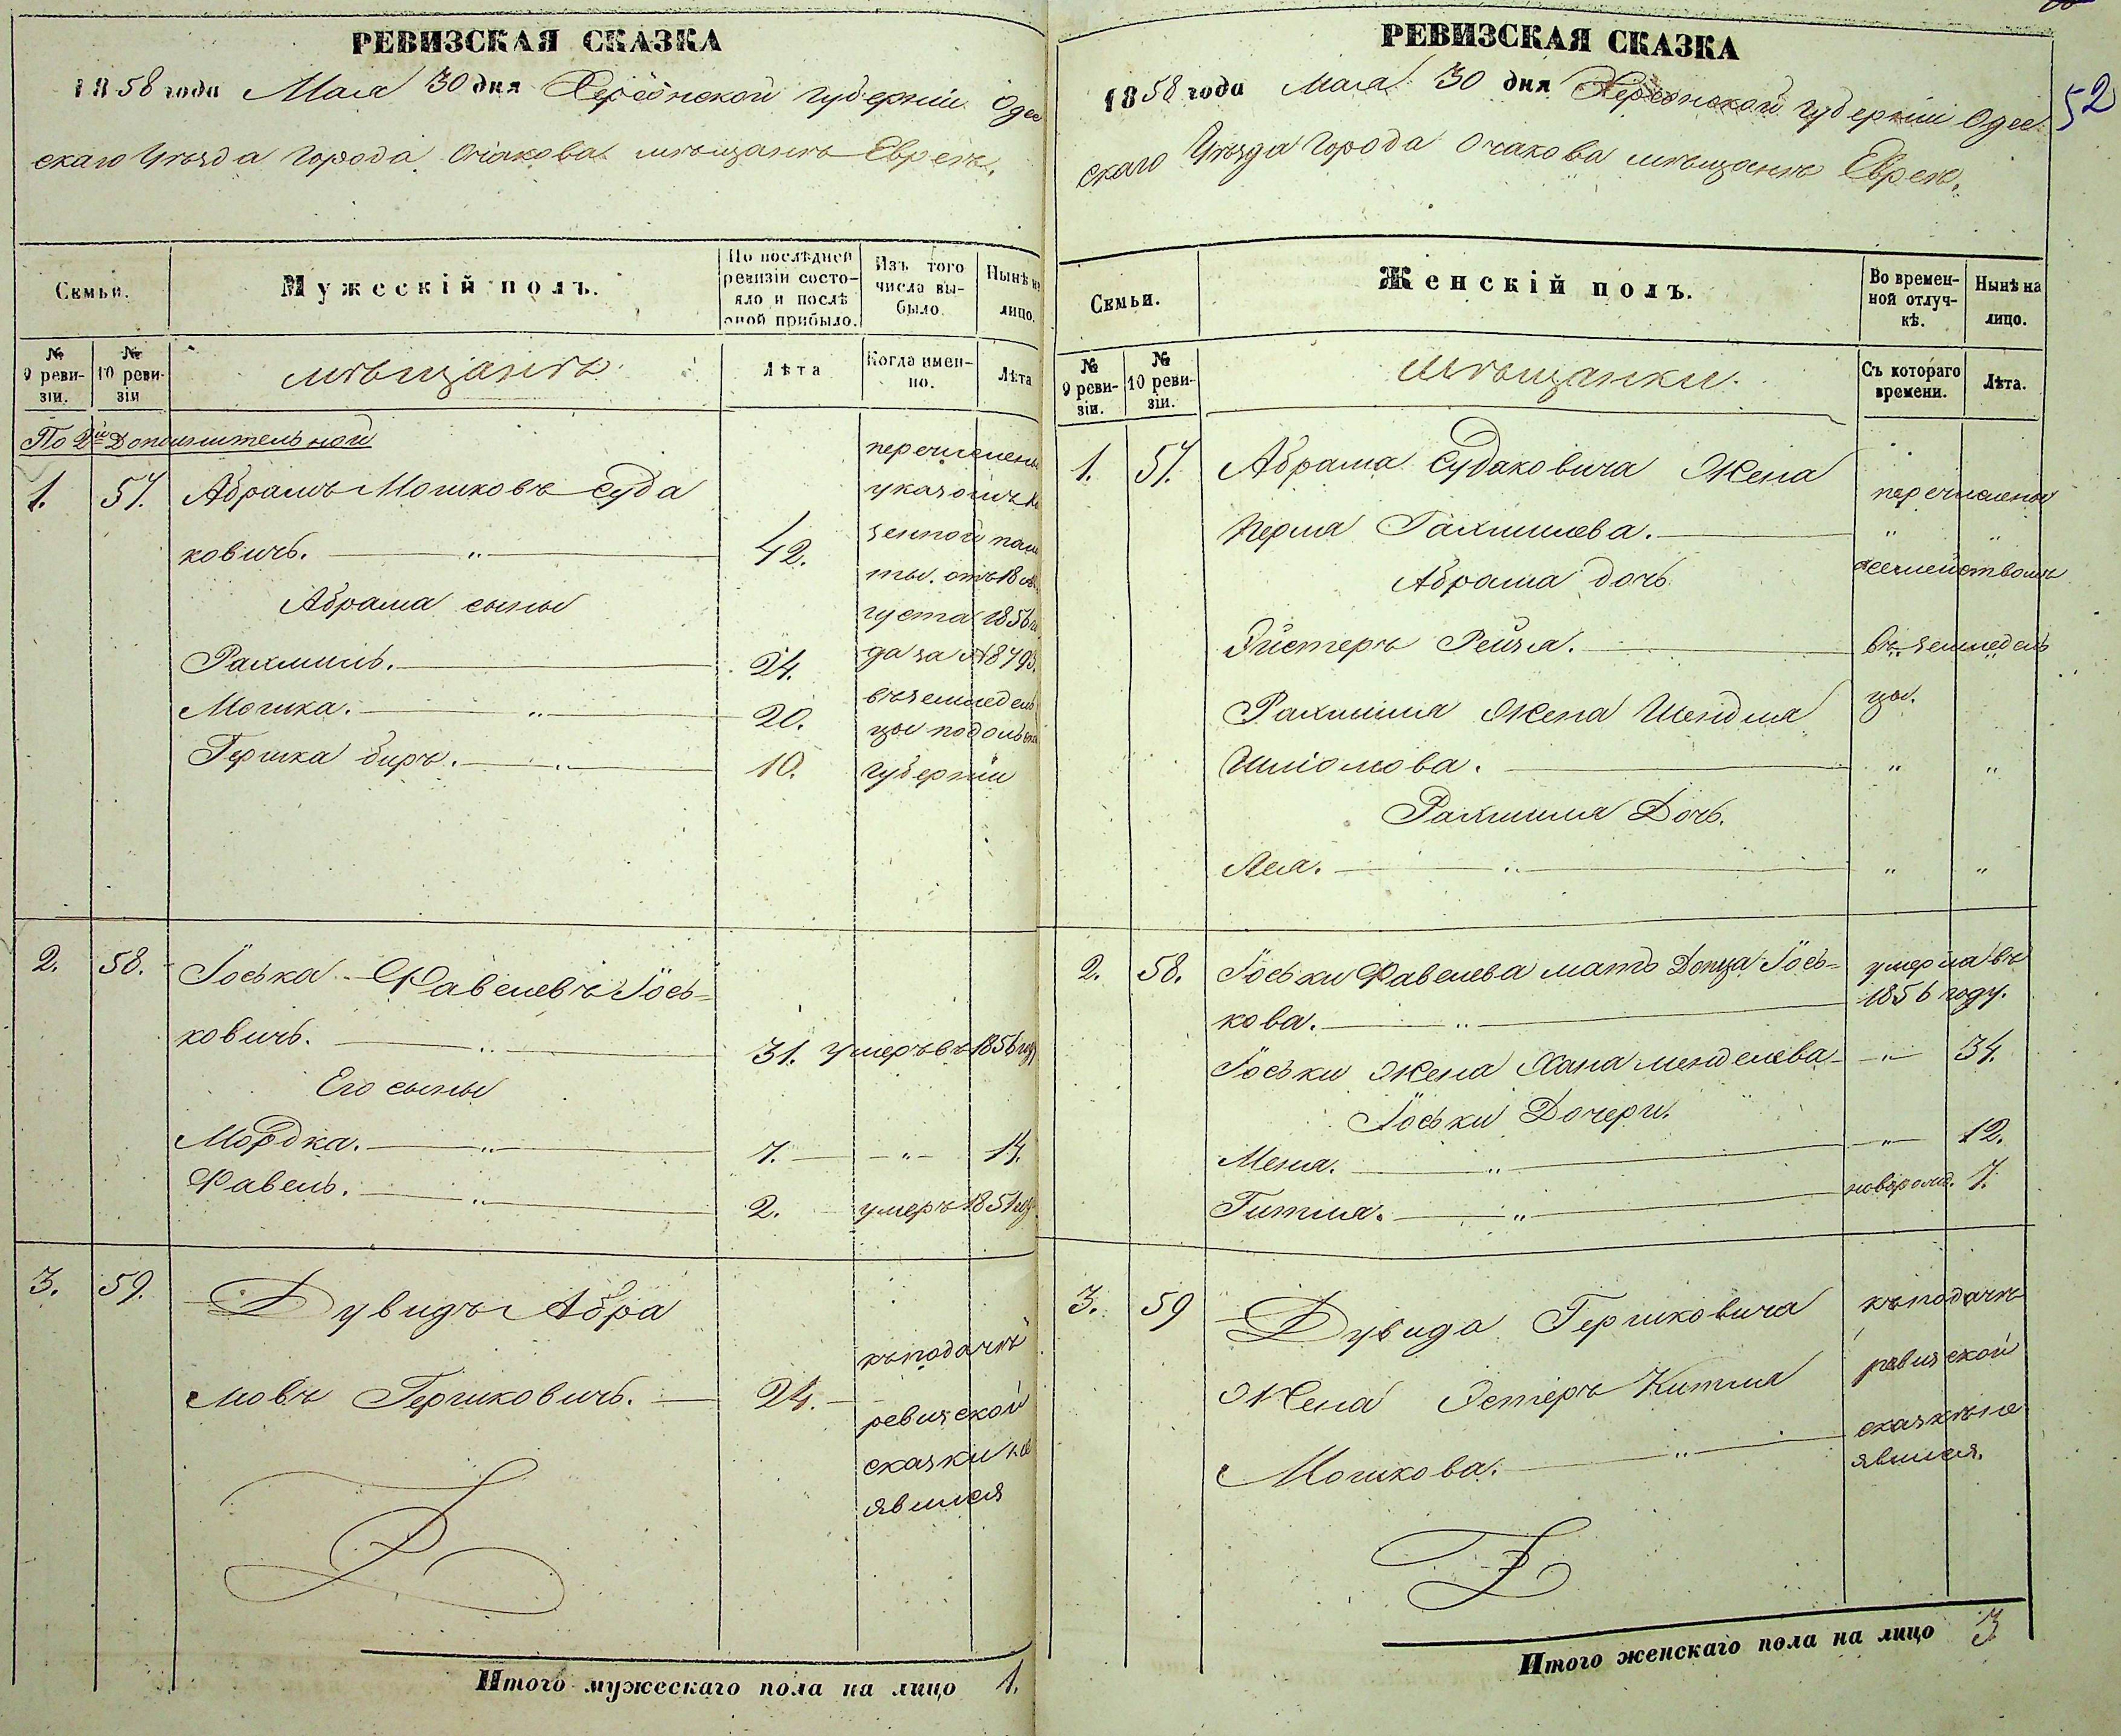 РЕВИЗСКАЯ СКАЗКА
1858 года Мая 30 дня Херсонской губерніи Одес
скаго Уѣзда города Очакова мѣщанъ Евреевъ.
Семьи.
Мужескій полъ.
По послѣдней ревизіи состояло и послѣ оной прибыло.
Изъ того числа выбыло.
Нынѣ на лицо.
№ 9 ревизіи.
№ 10 ревизіи
мѣщанъ
Лѣта
Когда именно.
Лѣта
По Дополнительной
1. 57. Абрамъ Мошковъ Суда
ковичъ. — " — 42.
Абрама сыны
Рахмиль. — 24.
Мошка. — " — 20.
Гершка Биръ. — " — 10.
перечислены
указомъ Ка
зенной пала
ты. отъ 18 ав
густа 1856 го
да за № 8793.
въ земледель
цы подольской
губерніи
2. 58. Іоська Фавелевъ Іось=
ковичъ. — " — 31. умеръ въ 1856 году
Его сыны
Мордка. — " — 7. — " — 14.
Фавель. — " — 2. умеръ 1851 году
3. 59. Дувидъ Абра
мовъ Гершковичъ. — 24. —
къ подачѣ
ревизской
сказки не
явился
Итого мужескаго пола на лицо 1.
52
РЕВИЗСКАЯ СКАЗКА
1858 года Мая 30 дня Херсонской губерніи Одес
скаго Уѣзда города Очакова мѣщанъ Евреевъ.
Семьи.
Женскій полъ.
Во временной отлучкѣ.
Нынѣ на лицо.
№ 9 ревизіи.
№ 10 ревизіи.
мѣщанки.
Съ котораго времени.
Лѣта.
1. 57. Абрама Судаковича Жена
Перля Рахмилева. —
Абрама дочь
Эйстеръ Рейзя. —
Рахмиля Жена Шендля
Шліомова. — " "
Рахмиля Дочь.
Лея. — " — " "
перечислены
" "
семействомъ
въ земледель
цы.
2. 58. Іоськи Фавелева мать Допца Іось=
кова. — " —
умерла въ
1856 году.
Іоськи Жена Хана менделева — " — 34.
Іоськи Дочери.
Меня. — " — " — 12.
Гитля. — " — новорожд. 7.
3. 59 Дувида Гершковича
Жена Эстеръ Китля
Мошкова. — " —
къ подачѣ
ревизской
сказкѣ не
явился.
Итого женскаго пола на лицо 3